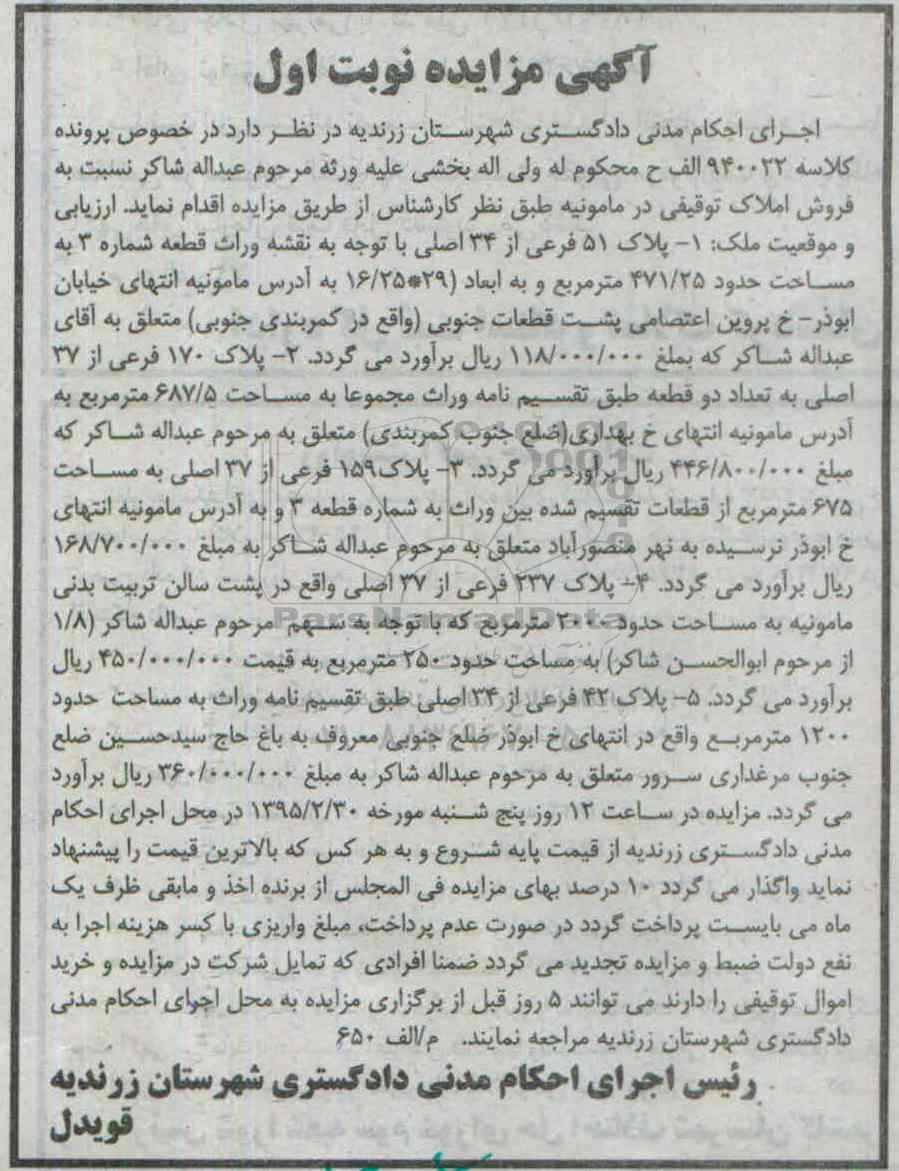 آگهی مزایده نوبت اول
اجرای احکام مدنی دادگستری شهرستان زرندیه در نظر دارد در خصوص پرونده
کلاسه ۹۴۰۰۲۲ الف ح محکوم له ولی اله بخشی علیه ورثه مرحوم عبداله شاکر نسبت به
فروش املاک توقیفی در مامونیه طبق نظر کارشناس از طریق مزایده اقدام نماید. ارزیابی
و موقعیت ملک: ۱- پلاک ۵۱ فرعی از ۳۴ اصلی با توجه به نقشه وراث قطعه شماره ۳ به
مساحت حدود ۴۷۱/۲۵ مترمربع و به ابعاد (۲۹*۱۶/۲۵ به آدرس مامونیه انتهای خیابان
ابوذر- خ پروین اعتصامی پشت قطعات جنوبی (واقع در کمربندی جنوبی) متعلق به آقای
عبداله شاکر که بملغ ۱۱۸/۰۰۰/۰۰۰ ریال برآورد می گردد. ۲- پلاک ۱۷۰ فرعی از ۳۷
اصلی به تعداد دو قطعه طبق تقسیم نامه وراث مجموعا به مساحت ۶۸۷/۵ مترمربع به
آدرس مامونیه انتهای خ بهداری(ضلع جنوب کمربندی) متعلق به مرحوم عبداله شاکر که
مبلغ ۴۴۶/۸۰۰/۰۰۰ ریال برآورد می گردد. ۳- پلاک۱۵۹ فرعی از ۳۷ اصلی به مساحت
۶۷۵ مترمربع از قطعات تقسیم شده بین وراث به شماره قطعه ۳ و به آدرس مامونیه انتهای
خ ابوذر نرسیده به نهر منصورآباد متعلق به مرحوم عبداله شاکر به مبلغ ۱۶۸/۷۰۰/۰۰۰
ریال برآورد می گردد. ۴- پلاک ۲۳۷ فرعی از ۳۷ اصلی واقع در پشت سالن تربیت بدنی
مامونیه به مساحت حدود ۲۰۰۰ مترمربع که با توجه به سهم مرحوم عبداله شاکر (۱/۸
از مرحوم ابوالحسن شاکر) به مساحت حدود ۲۵۰ مترمربع به قیمت ۴۵۰/۰۰۰/۰۰۰ ریال
برآورد می گردد. ۵- پلاک ۴۲ فرعی از ۳۴ اصلی طبق تقسیم نامه وراث به مساحت حدود
۱۲۰۰ مترمربع واقع در انتهای خ ابوذر ضلع جنوبی معروف به باغ حاج سیدحسین ضلع
جنوب مرغداری سرور متعلق به مرحوم عبداله شاکر به مبلغ ۳۶۰/۰۰۰/۰۰۰ ریال برآورد
می گردد. مزایده در ساعت ۱۲ روز پنج شنبه مورخه ۱۳۹۵/۲/۳۰ در محل اجرای احکام
مدنی دادگستری زرندیه از قیمت پایه شروع و به هر کس که بالاترین قیمت را پیشنهاد
نماید واگذار می گردد ۱۰ درصد بهای مزایده فی المجلس از برنده اخذ و مابقی ظرف یک
ماه می بایست پرداخت گردد در صورت عدم پرداخت، مبلغ واریزی با کسر هزینه اجرا به
نفع دولت ضبط و مزایده تجدید می گردد ضمنا افرادی که تمایل شرکت در مزایده و خرید
اموال توقیفی را دارند می توانند ۵ روز قبل از برگزاری مزایده به محل اجرای احکام مدنی
دادگستری شهرستان زرندیه مراجعه نمایند. م/الف ۶۵۰
رئیس اجرای احکام مدنی دادگستری شهرستان زرندیه
قویدل
ParsNamadData